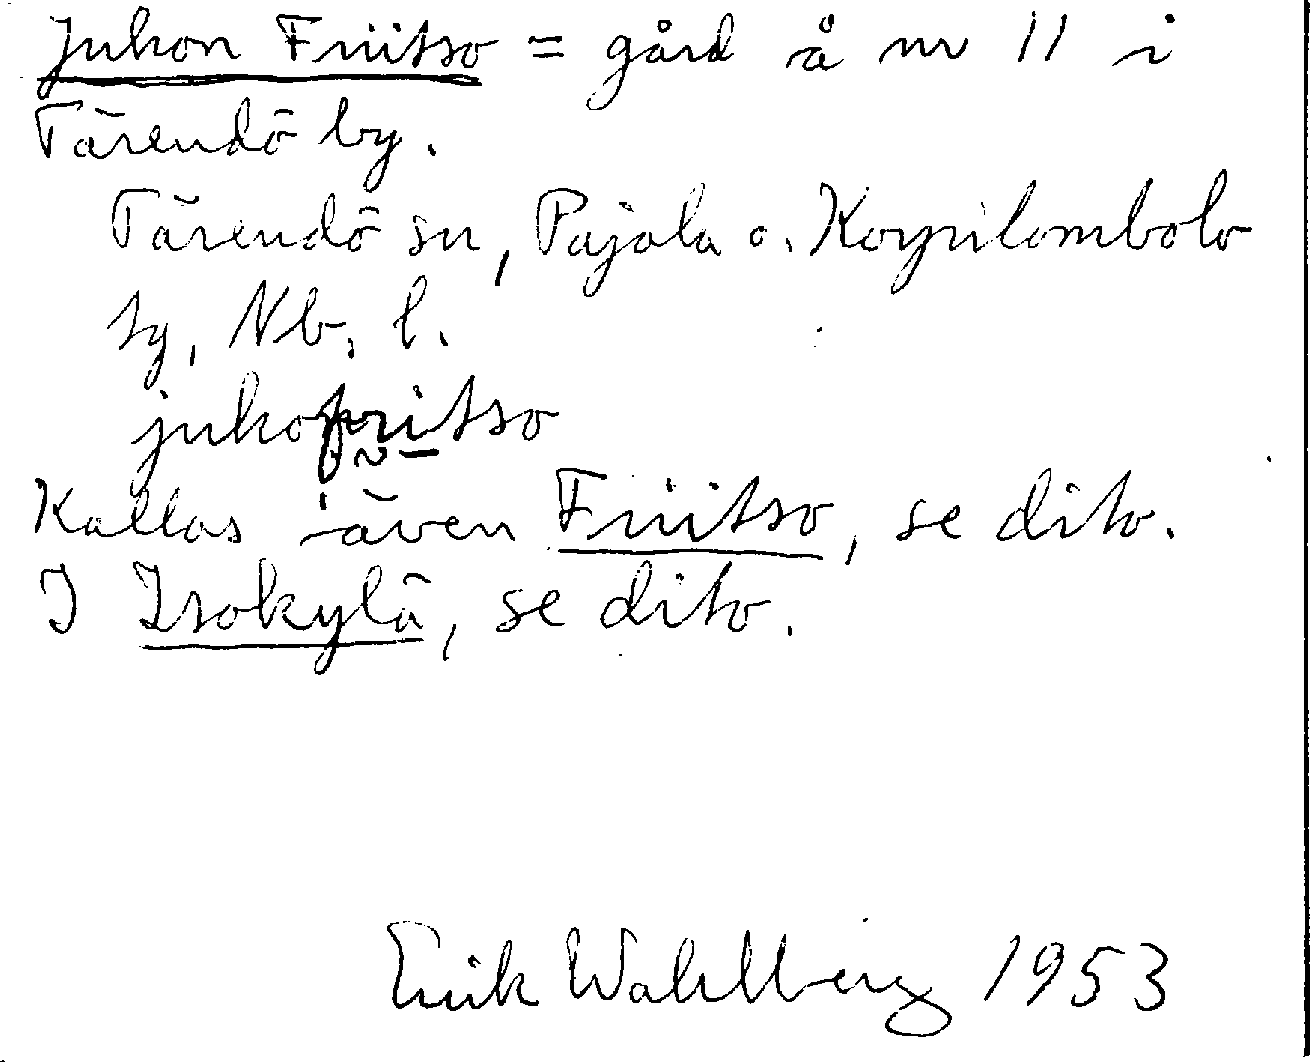 Juhon Friitso = gård å nr 11 i
Tärendö by.
Tärendö sn, Pajala o. Korpilombolo
tg, Nb. l.
juhofritso
Kallas även Friitso, se dito.
I Isokylä, se dito.
Erik Wahlberg 1953